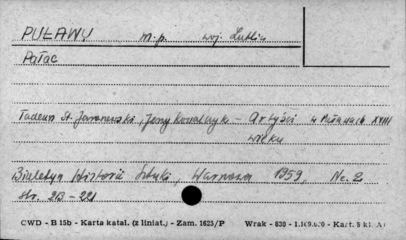 PUŁAWY m.p. woj. Lublin
Pałac
Tadeusz St. Jaroszewski, Jerzy Kowalczyk - Artyści w Puławach XVIII
wieku
Biuletyn Historii Sztuki, Warszawa 1959, Nr. 2
str. 213-221
CWD - B 15b - Karta katal. (z liniat.) - Zam. 1625/P Wrak - 630 -